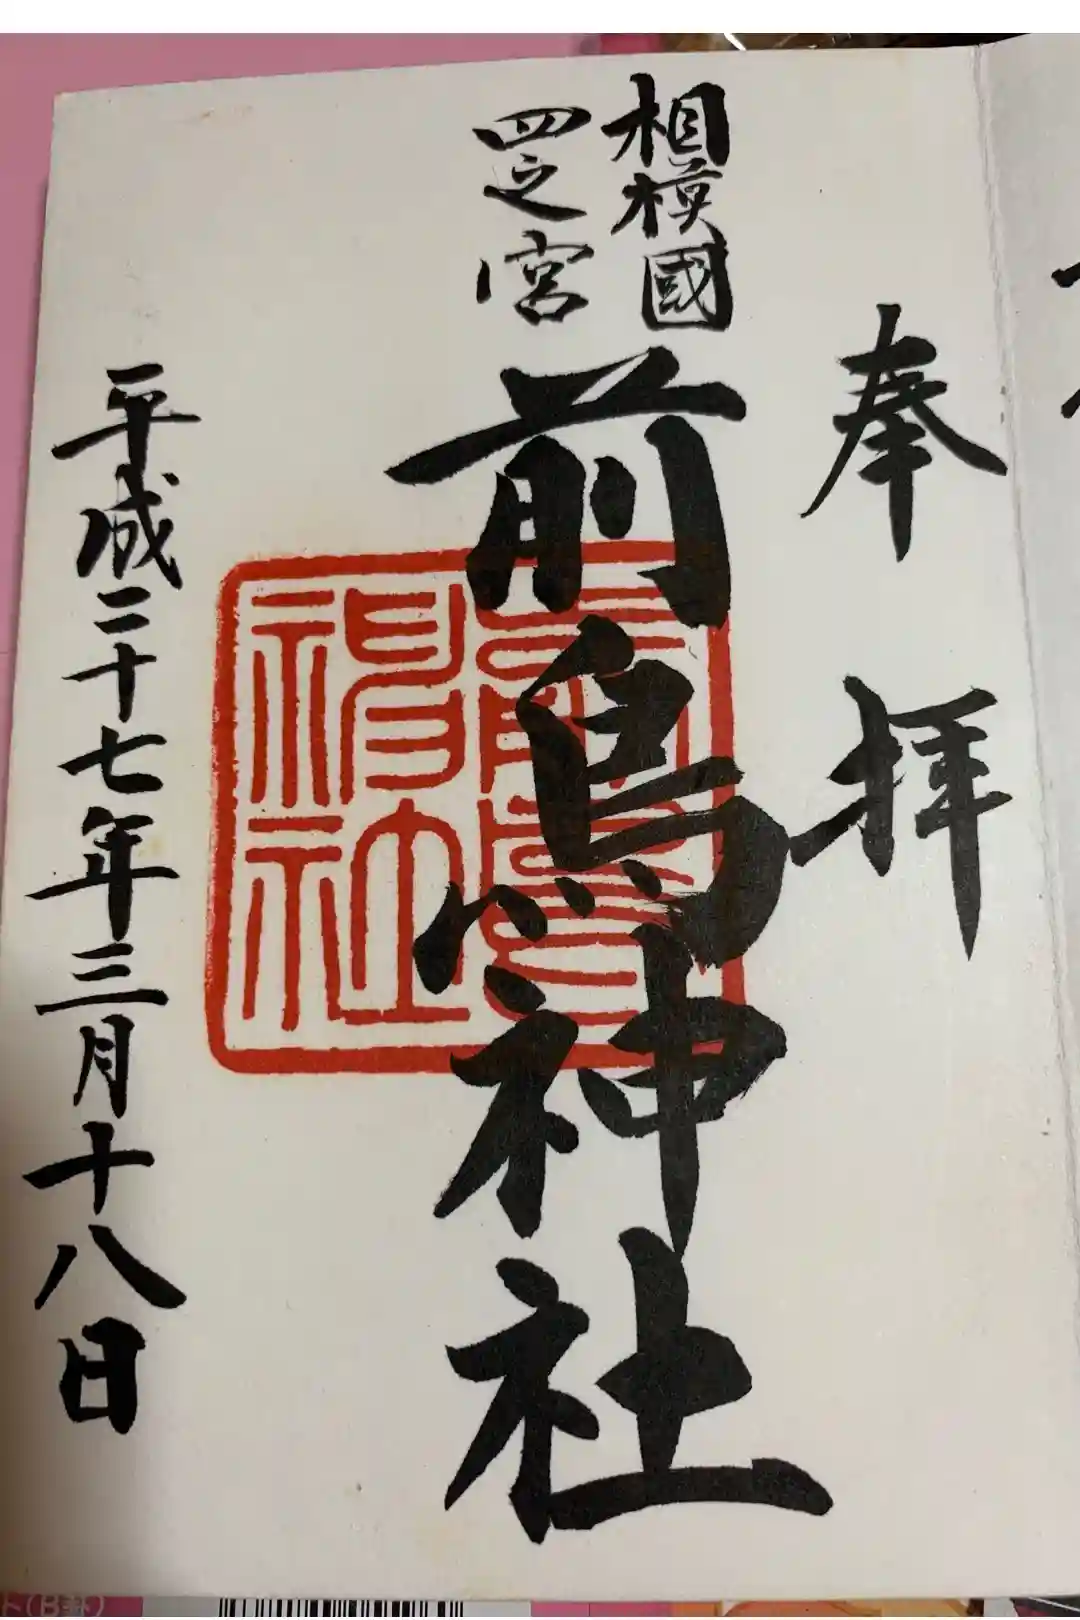 奉拝
相模國
四之宮
前鳥神社
平成二十七年三月十八日
前鳥神社
ト(B